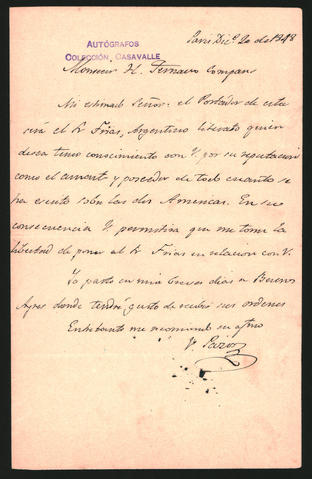 AUTÓGRAFOS
COLECCIÓN, CASAVALLE
Paris Dic.e 20 de 1848
Monsieur H. Ternaux Compans
Mi estimado Señor: el Portador de esta
será el Sr Frias, Argentino literato quien
desea tener conocimiento con V. por su reputacion
como el amante y poseedor de todo cuanto se
ha escrito sobre las dos Americas. En su
consecuencia V. permitira que me tome la
libertad de poner al Sr Frias en relacion con V.
Yo parto en mui breves dias a Buenos
Ayres donde tendré gusto de recibir sus ordenes
Entretanto me recomiendo su afmo
V. Pazos